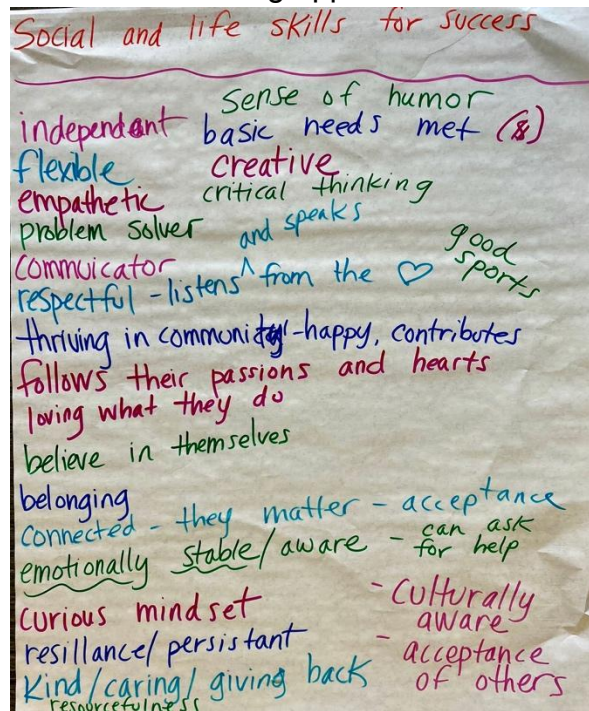 Social and life skills for success
sense of humor
independant basic needs met ($)
flexible creative
empathetic critical thinking
problem solver and speaks
commuicator good sports
respectful - listens ^ from the ♡
thriving in community - happy, contributes
follows their passions and hearts
loving what they do
believe in themselves
belonging
connected - they matter - acceptance
emotionally stable/aware - can ask for help
curious mindset - culturally aware
resillance/persistant - acceptance of others
Kind/caring/giving back
resourcefulness